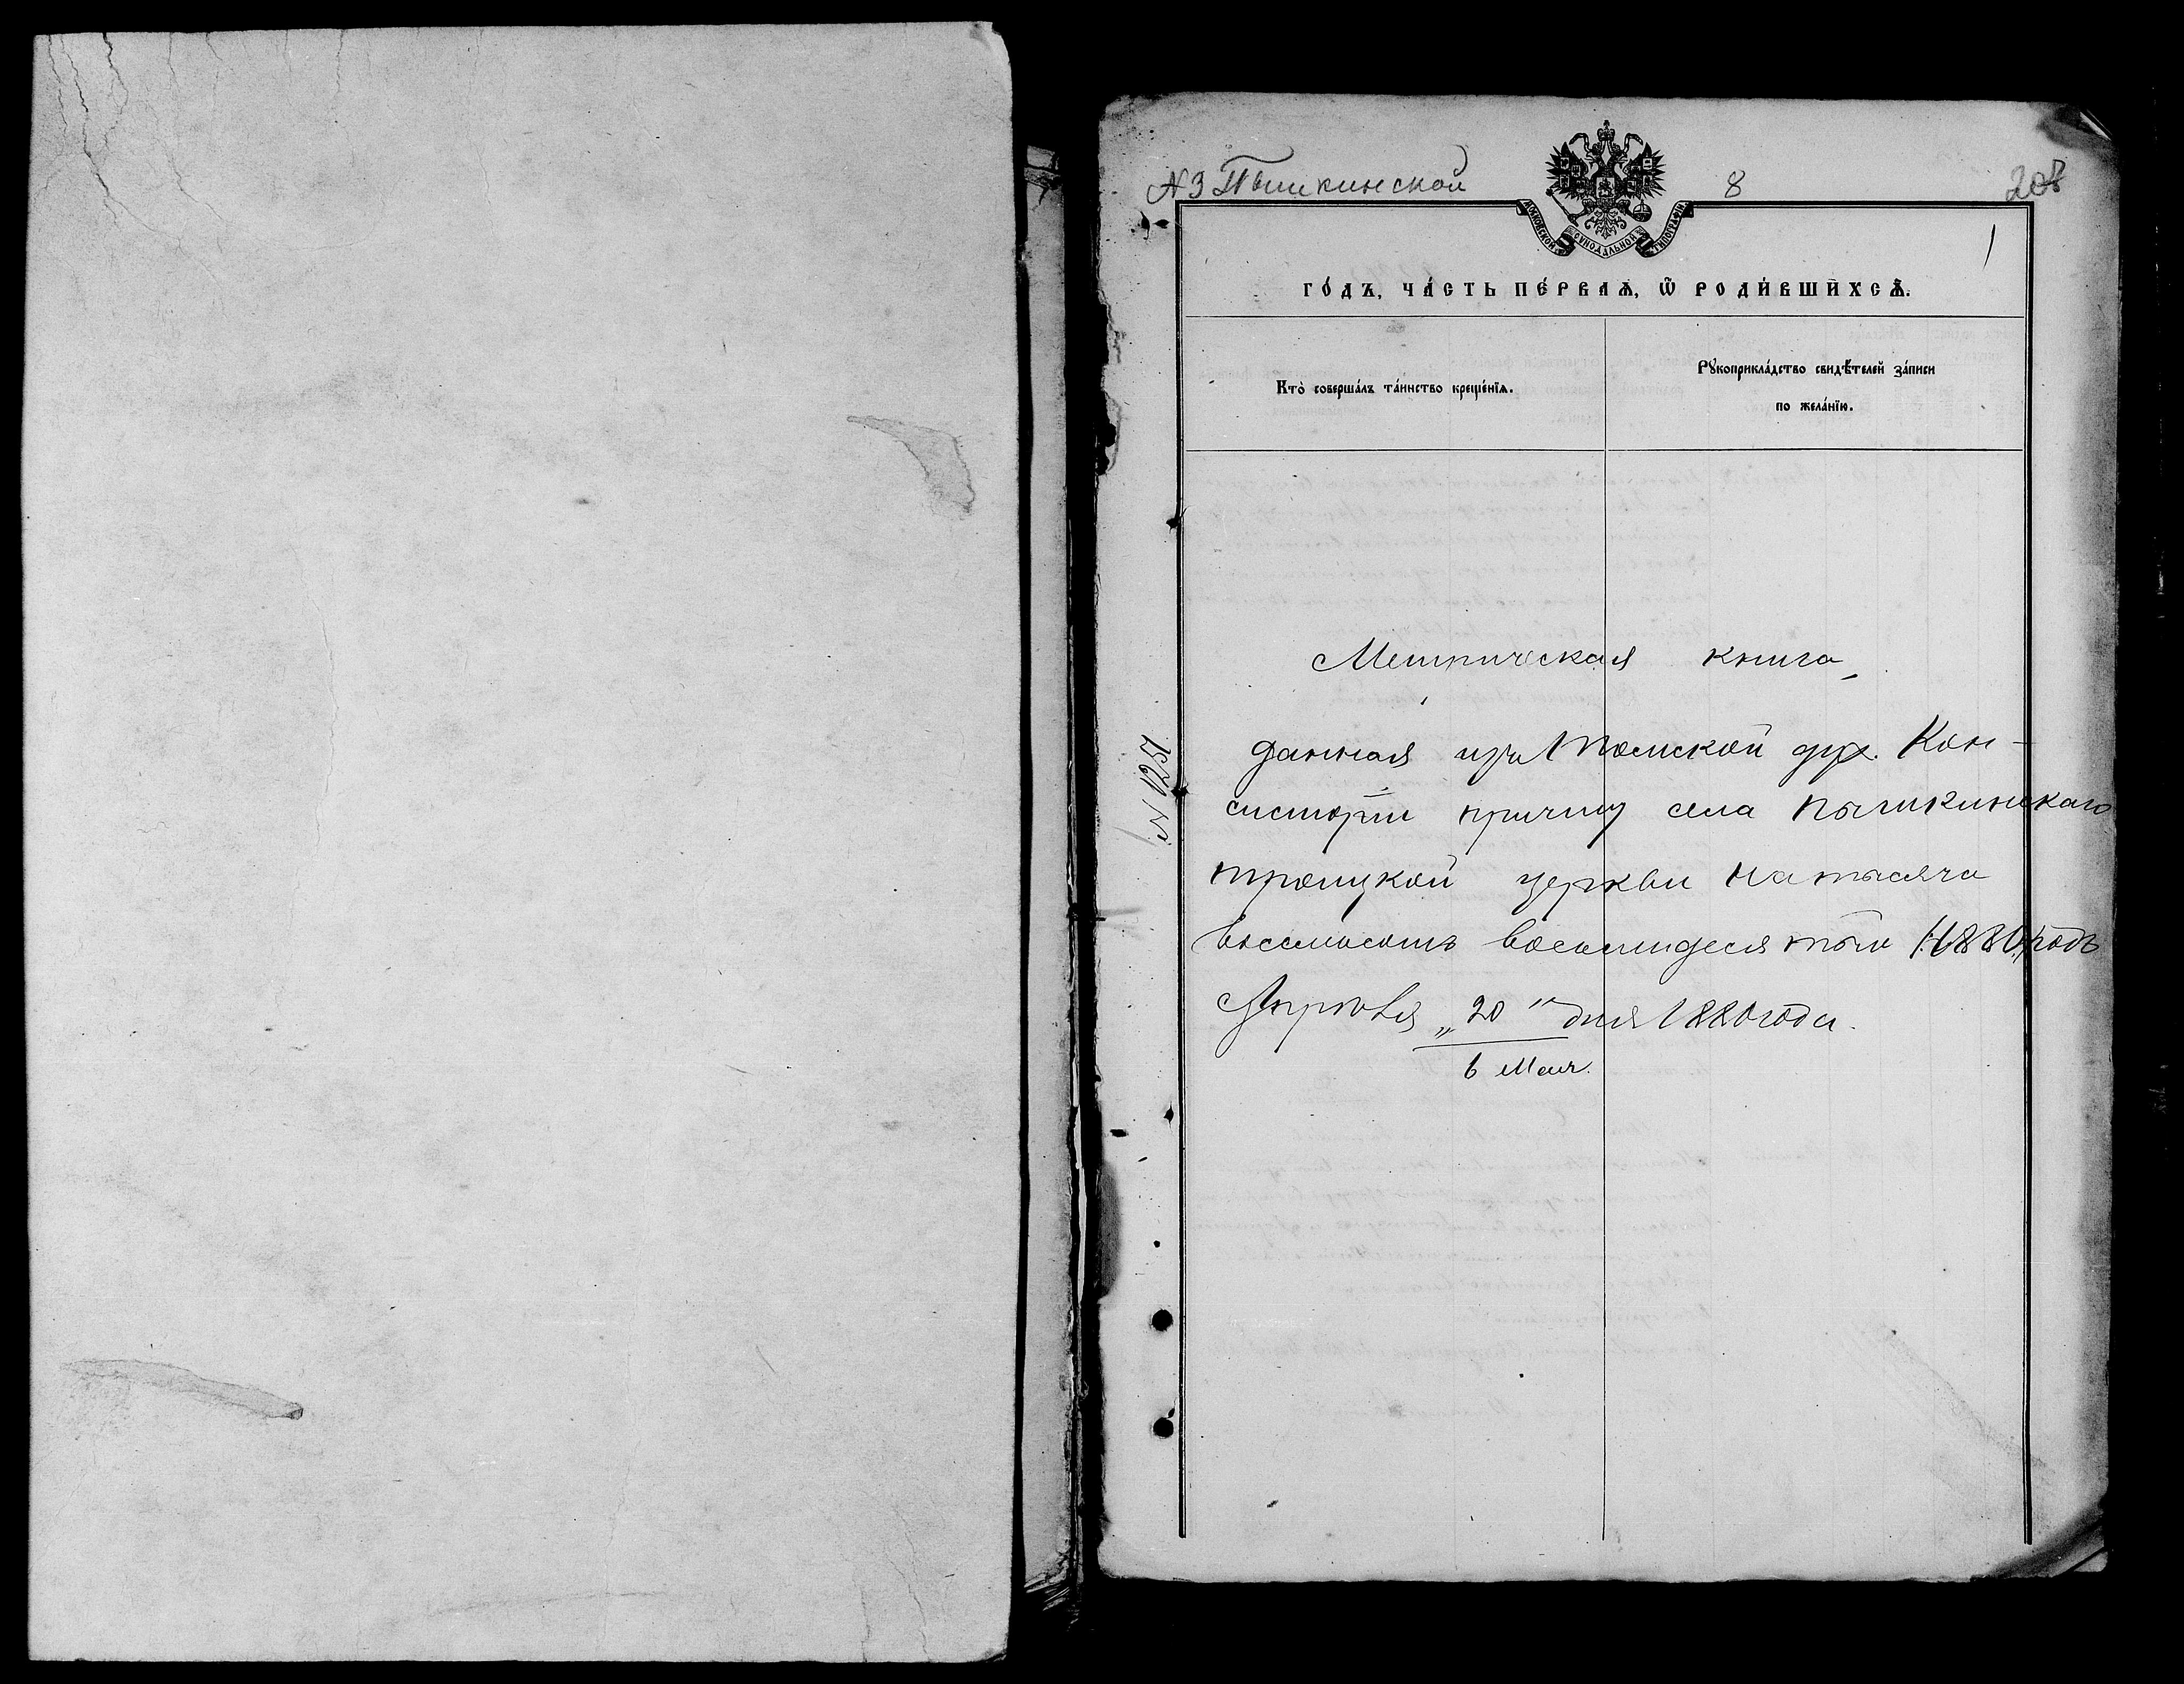 № 3 Пышкинской
8
208
МОСКОВСКОЙ СѴНОДАЛЬНОЙ ТИПОГРАФІИ
1
ГО́ДЪ, ЧА́СТЬ ПЕ́РВАѦ, Ѿ РОДИ́ВШИХСѦ.
Кто̀ соверша́лъ та́инство креще́нїѧ.
Рꙋкоприкла́дство свидѣ́телей за́писи
по жела́нїю.
Метрическая книга,
данная изъ Томской дух. Кон-
систоріи причту села Пышкинскаго
троицкой церкви на тысяча
восемьсотъ восемьдесятый /:1880:/ годъ
Апрѣля „20" дня 1880 года.
6 Мая.
№ 1251